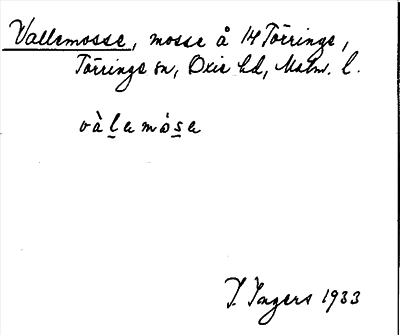 Vallemosse, mosse å 14 Törringe,
Törringe sn, Oxie hd, Malm. l.
vàl̲emós̲e
I. Ingers 1933